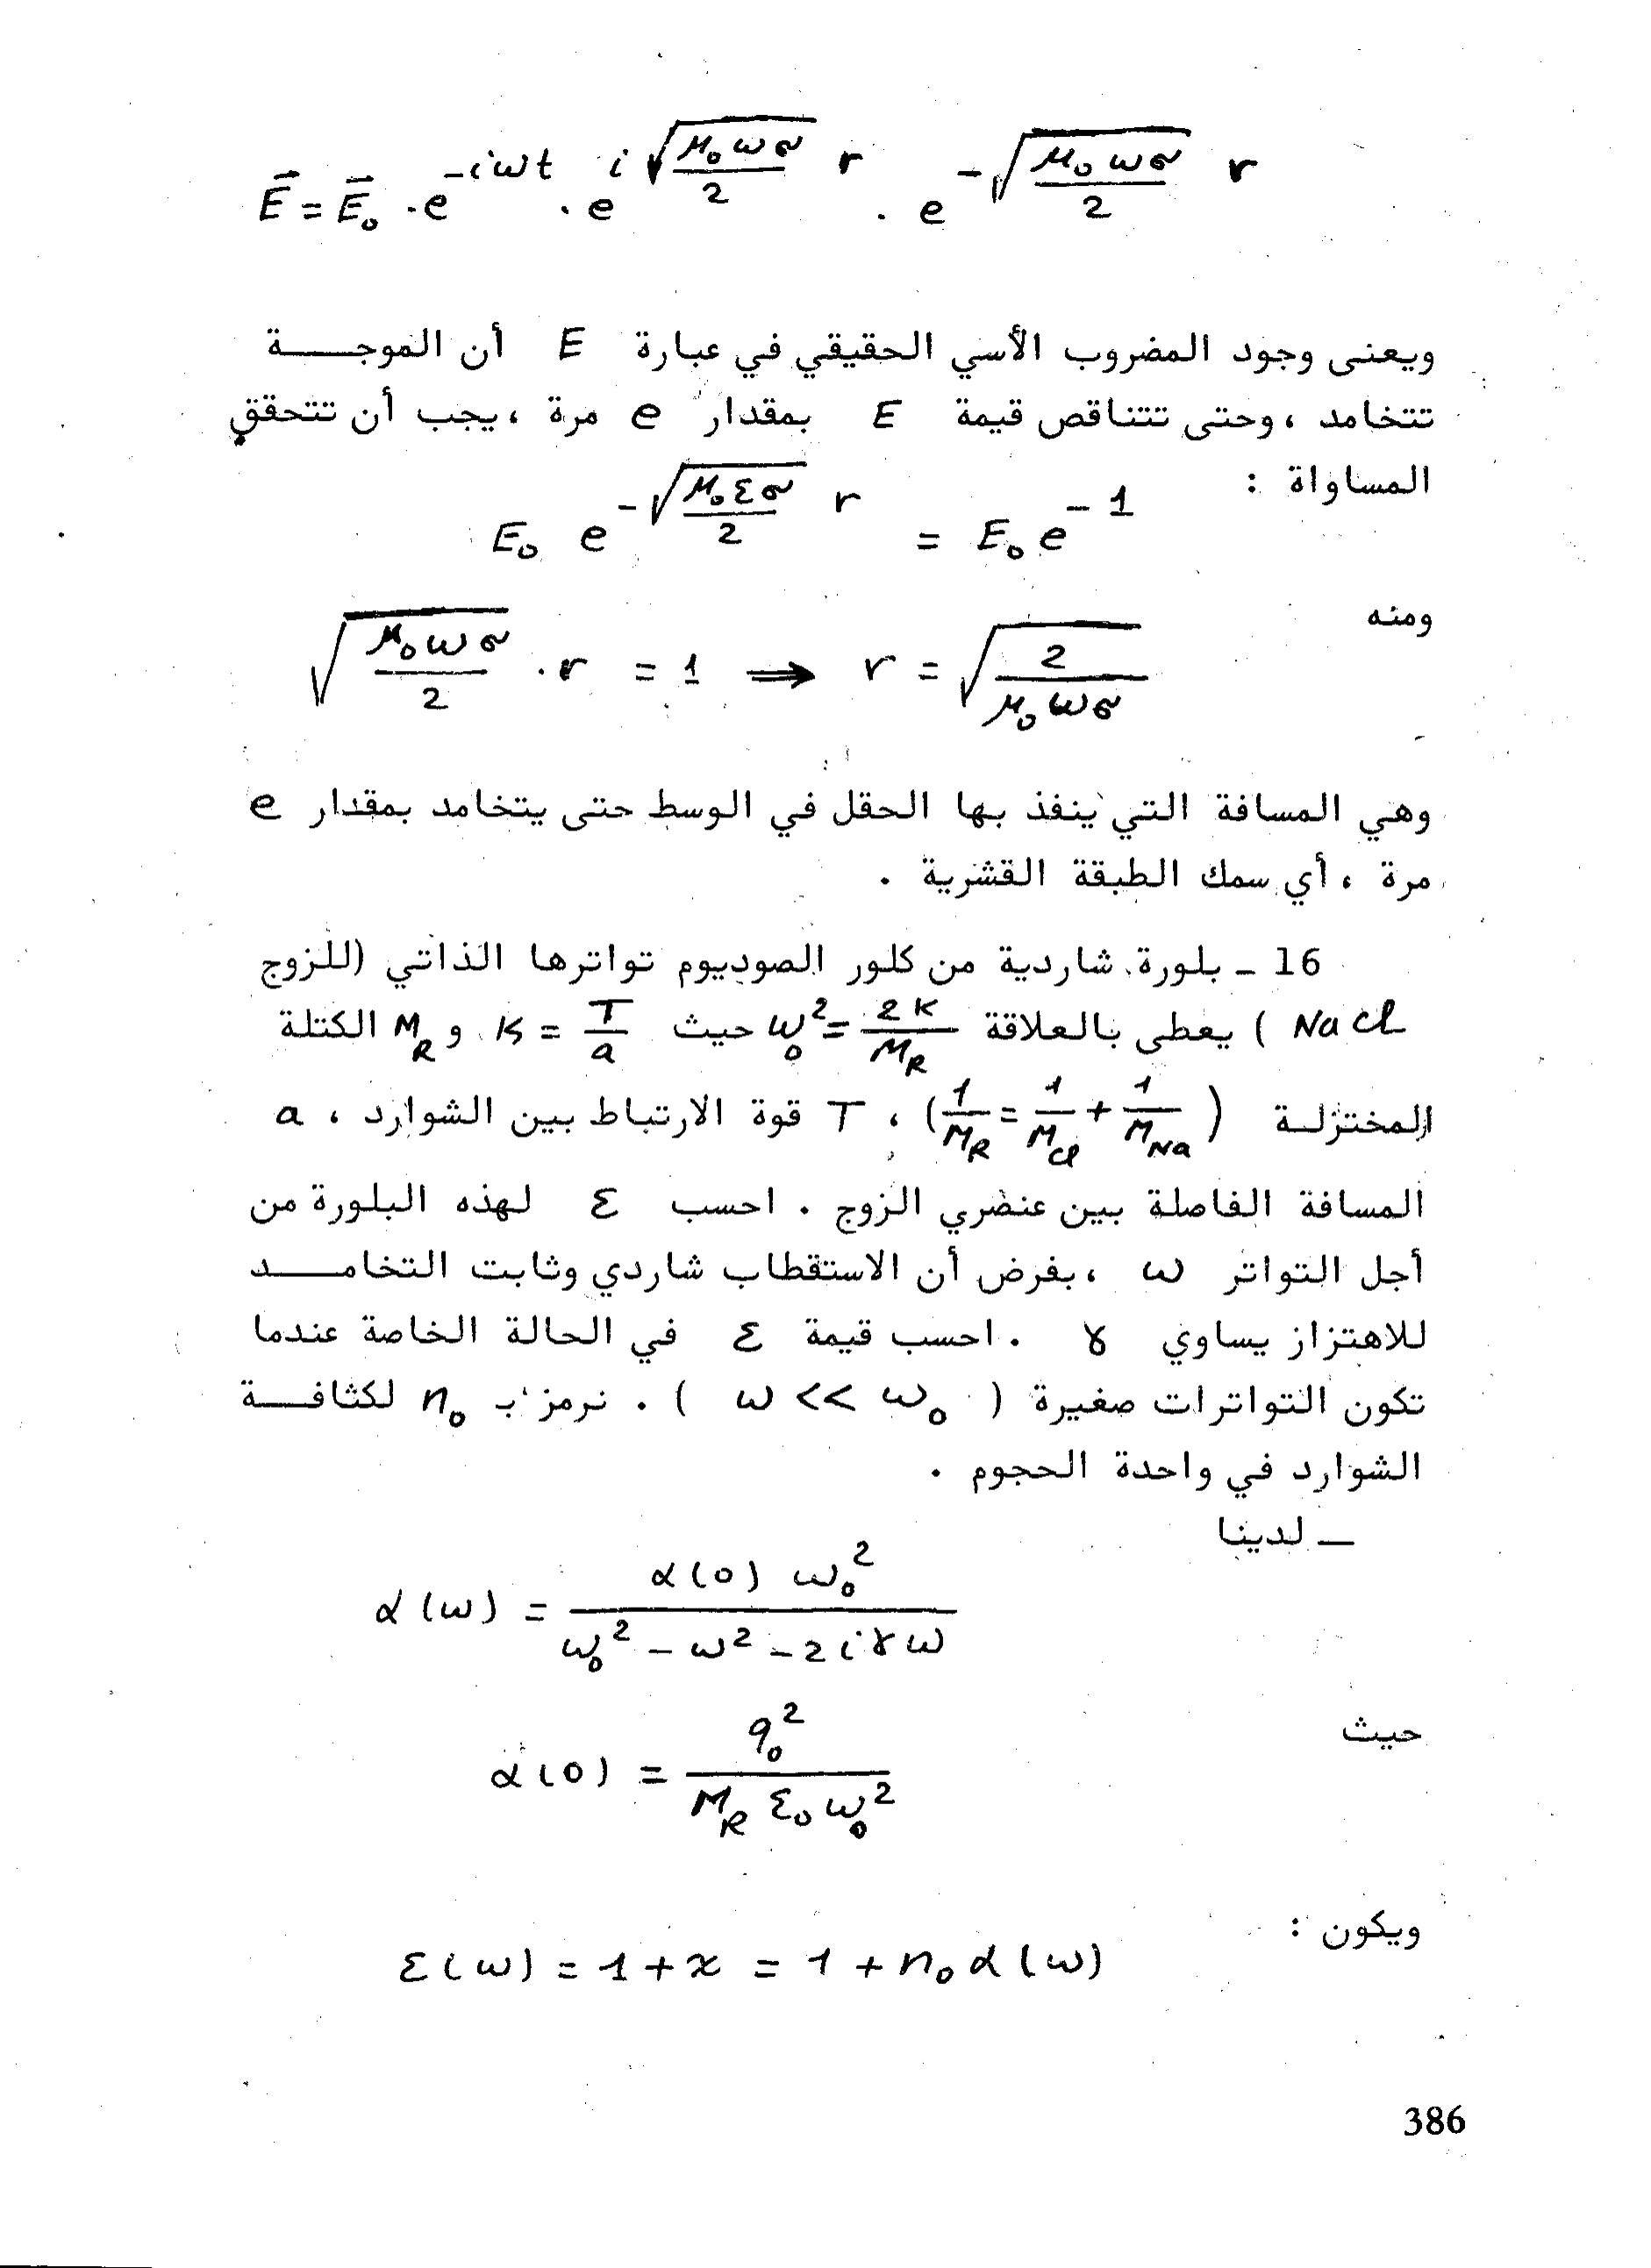 E⃗ = E⃗₀ · e^(-iωt) · e^(i√(μ₀ωσ/2) r) · e^(-√(μ₀ωσ/2) r)
ويعنى وجود المضروب الأسي الحقيقي في عبارة E أن الموجـــة
تتخامد ، وحتى تتناقص قيمة E بمقدار e مرة ، يجب أن تتحقق
المساواة :
E₀ e^(-√(μ₀εσ/2) r) = E₀ e^(-1)
ومنه
√(μ₀ωσ/2) · r = 1 ⟹ r = √(2/(μ₀ωσ))
وهي المسافة التي ينفذ بها الحقل في الوسط حتى يتخامد بمقدار e
مرة ، أي سمك الطبقة القشرية .
16 – بلورة شاردية من كلور الصوديوم تواترها الذاتي (للزوج
NaCl ) يعطى بالعلاقة ω₀² = 2K/M_R حيث K = T/a و M_R الكتلة
المختزلة (1/M_R = 1/M_Cl + 1/M_Na) ، T قوة الارتباط بين الشوارد ، a
المسافة الفاصلة بين عنصري الزوج . احسب ε لهذه البلورة من
أجل التواتر ω ، بفرض أن الاستقطاب شاردي وثابت التخامـــد
للاهتزاز يساوي γ . احسب قيمة ε في الحالة الخاصة عندما
تكون التواترات صغيرة ( ω << ω₀ ) . نرمز بـ n₀ لكثافـــة
الشوارد في واحدة الحجوم .
— لدينا
α(ω) = α(0) ω₀² / (ω₀² - ω² - 2iγω)
حيث
α(0) = q₀² / (M_R ε₀ ω₀²)
ويكون :
ε(ω) = 1 + x = 1 + n₀ α(ω)
386